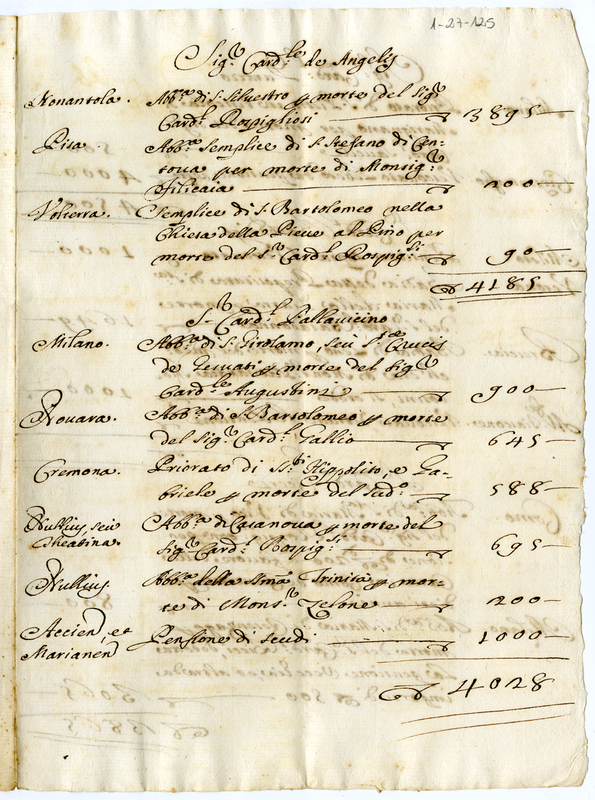 1-27-125
Sig.r Card.le de Angelis
Nonantola. Abb.a di S. Silvestro p morte del Sig.r
Card.l Rospigliosi 3895
Pisa. Abb.a Semplice di S. Stefano di Cen-
toua per morte di Monsig.r
Filicaia 200
Volterra. Semplice di S. Bartolomeo nella
Chiesa della Pieve al Pino per
morte del S.r Card.l Rospig.si 90
4185
S.r Card.l Pallavicino
Milano. Abb.a di S. Girolamo, seu S.ae Crucis
de Gesuati p morte del Sig.r
Card.le Augustini 900
Nouara. Abb.a di S. Bartolomeo p morte
del Sig.r Card.l Gallio 645
Cremona. Priorato di SS.ti Hippolito, e Ga-
briele p morte del sud.o 588
Nullius seu Abb.a di Casanova p morte del
Theatina. Sig.r Card.l Rospig.si 695
Nullius Abb.a della SSma Trinità p mor-
te di Mons.r 200
et Pensione di scudi 1000
Marianen
4028